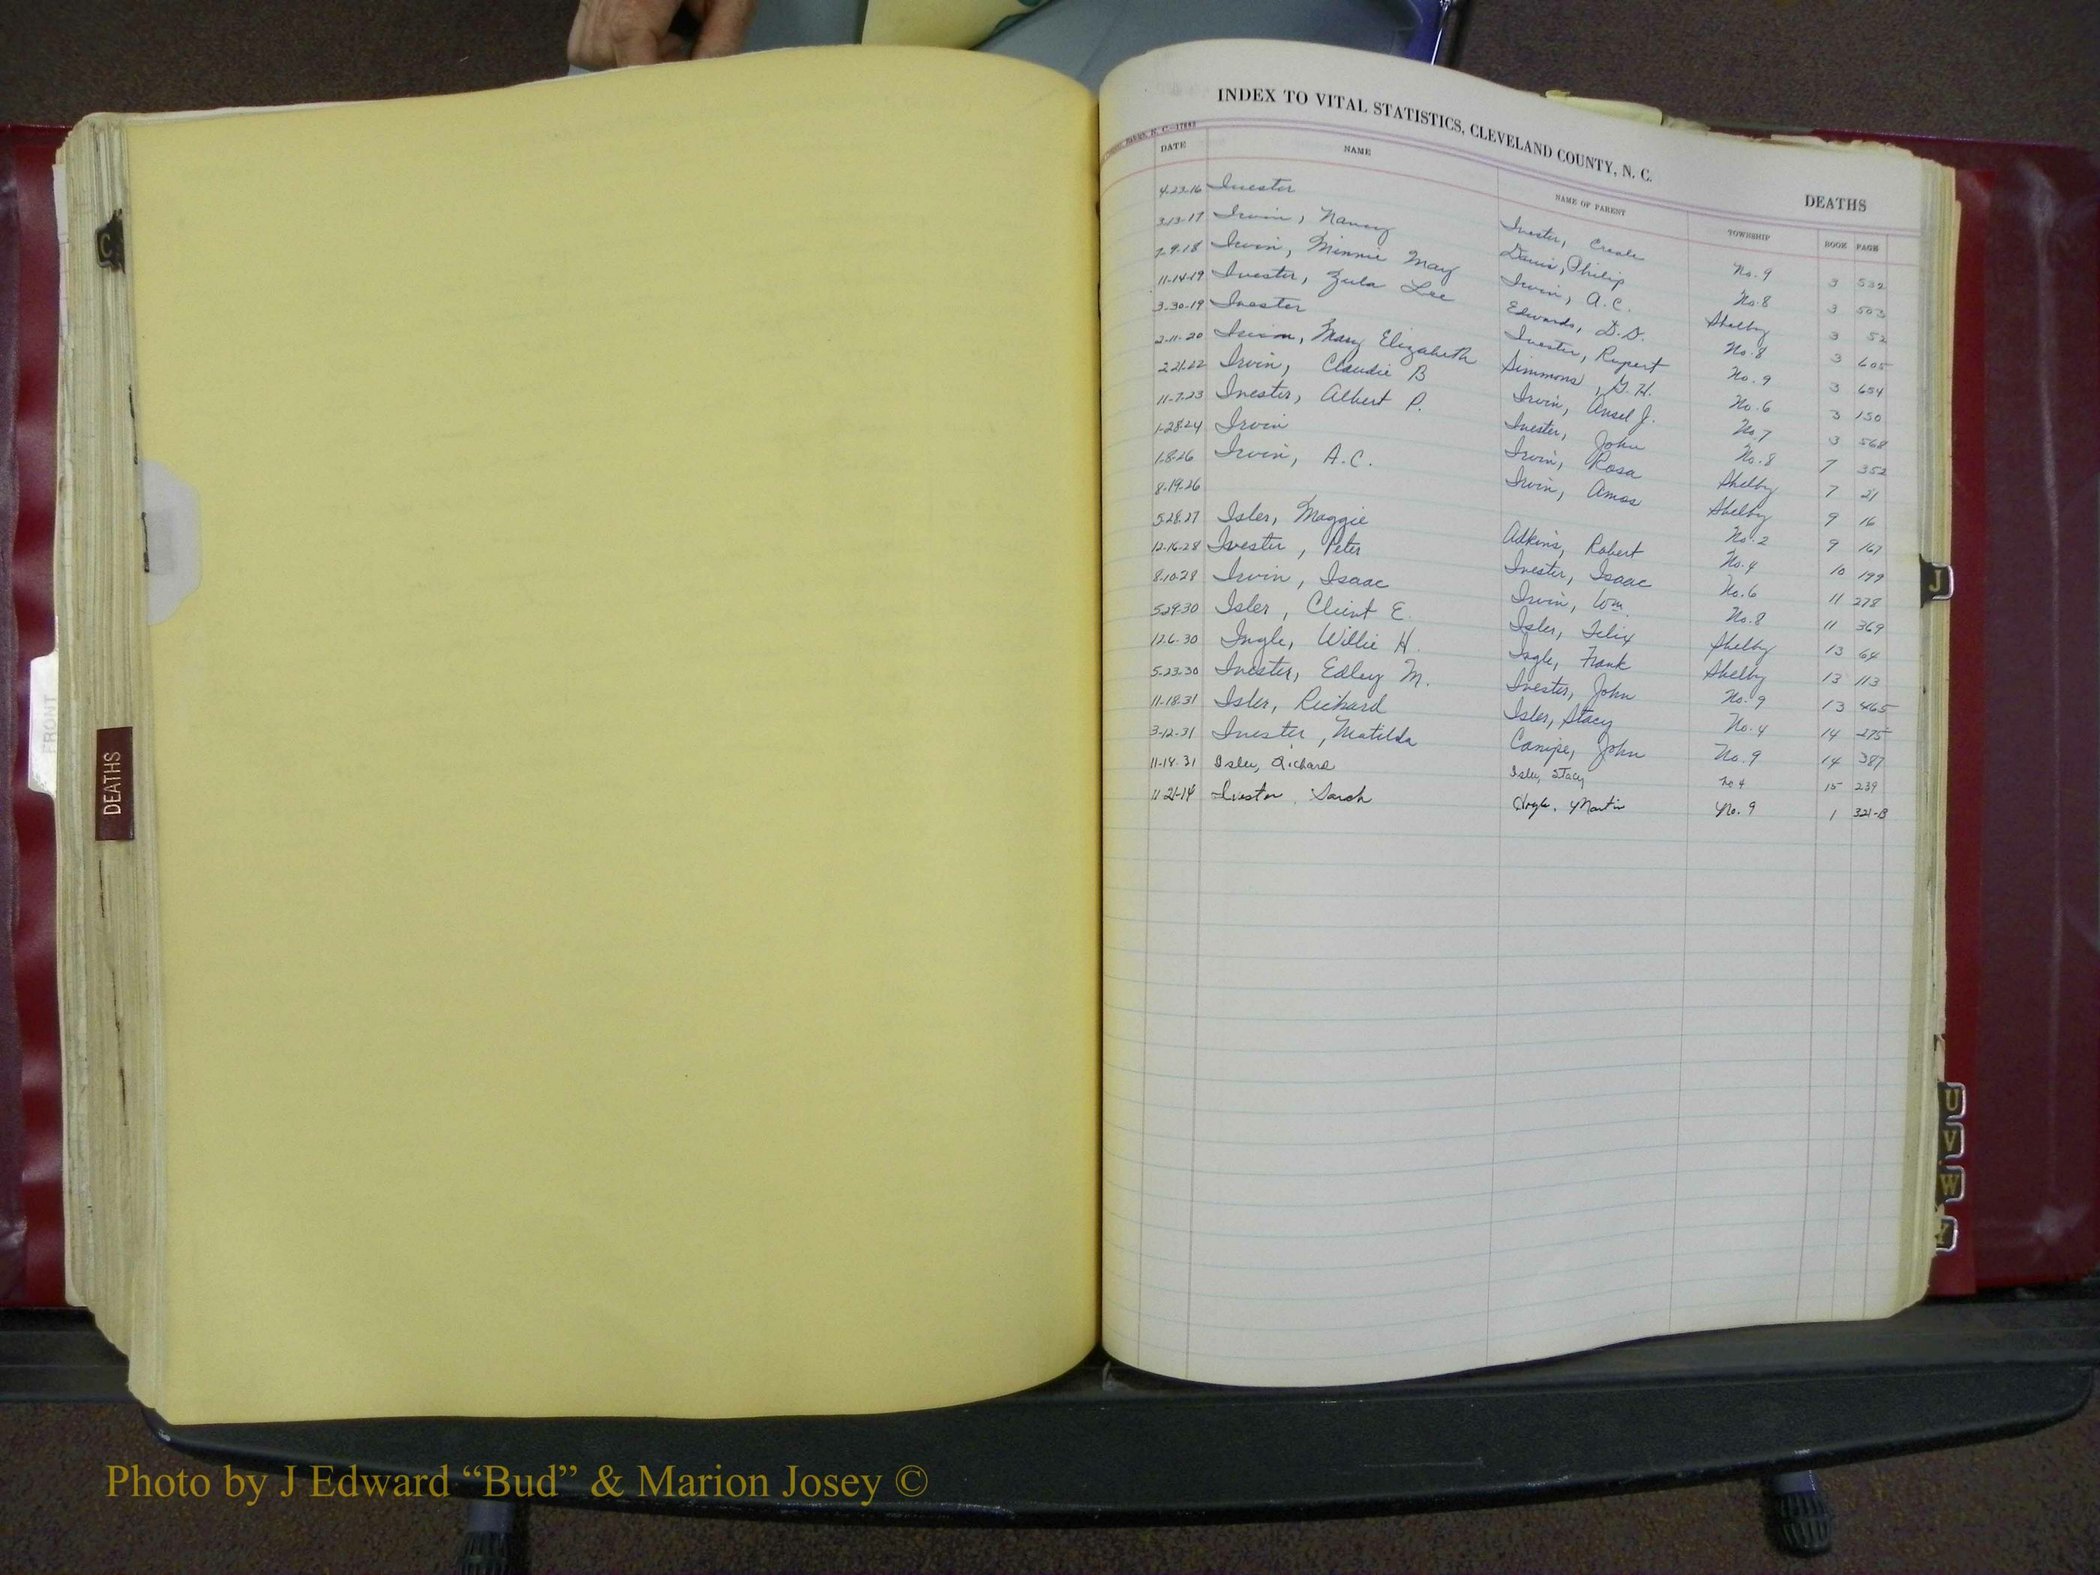 INDEX TO VITAL STATISTICS, CLEVELAND COUNTY, N. C.
DEATHS
N. C.—17693
DATE NAME NAME OF PARENT TOWNSHIP BOOK PAGE
4-23-16 Ivester Ivester, Creole No. 9 3 532
3-13-17 Irvin, Nancy Davis, Philip No. 8 3 503
7-9-18 Irvin, Minnie May Irvin, A.C. Shelby 3 52
11-14-19 Ivester, Zula Lee Edwards, D.D. No. 8 3 605
3-30-19 Ivester Ivester, Rupert No. 9 3 654
2-11-20 Irvin, Mary Elizabeth Simmons, G.H. No. 6 3 150
2-21-22 Irvin, Claudie B Irvin, Ansel J. No. 7 3 568
11-7-23 Ivester, Albert P. Ivester, John No. 8 7 352
1-28-24 Irvin Irvin, Rosa Shelby 7 21
1-8-26 Irvin, A.C. Irvin, Amos Shelby 9 16
8-19-26 No. 2 9 167
5-28-27 Isler, Maggie Adkins, Robert No. 4 10 199
12-16-28 Ivester, Peter Ivester, Isaac No. 6 11 278
8-10-28 Irvin, Isaac Irvin, Wm. No. 8 11 369
5-29-30 Isler, Clint E. Isler, Felix Shelby 13 64
12-6-30 Ingle, Willie H. Ingle, Frank Shelby 13 113
5-23-30 Ivester, Edley M. Ivester, John No. 9 13 465
11-18-31 Isler, Richard Isler, Stacy No. 4 14 275
3-12-31 Ivester, Matilda Canipe, John No. 9 14 387
11-14-31 Isler, Richard Isler, Stacy No 4 15 239
11-21-14 Ivester, Sarah Hoyle, Martin No. 9 1 321-B
C
FRONT
DEATHS
J
U
V
W
Y
Photo by J Edward “Bud” & Marion Josey ©